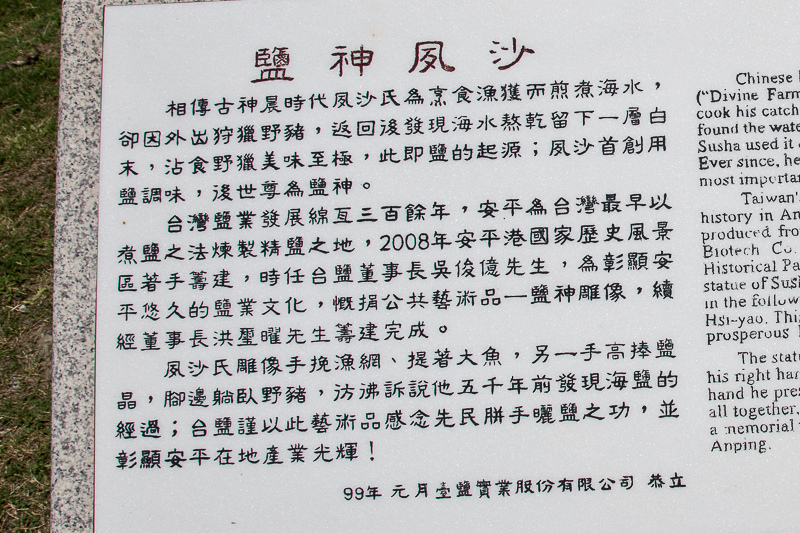 鹽神夙沙
相傳古神晨時代夙沙氏為烹食漁獲而煎煮海水，
卻因外出狩獵野豬，返回後發現海水熬乾留下一層白
末，沾食野獵美味至極，此即鹽的起源；夙沙首創用
鹽調味，後世尊為鹽神。
台灣鹽業發展綿亙三百餘年，安平為台灣最早以
煮鹽之法煉製精鹽之地，2008年安平港國家歷史風景
區著手籌建，時任台鹽董事長吳俊億先生，為彰顯安
平悠久的鹽業文化，慨捐公共藝術品—鹽神雕像，續
經董事長洪璽曜先生籌建完成。
夙沙氏雕像手挽漁網、提著大魚，另一手高捧鹽
晶，腳邊躺臥野豬，彷彿訴說他五千年前發現海鹽的
經過；台鹽謹以此藝術品感念先民胼手曬鹽之功，並
彰顯安平在地產業光輝！
99年 元月臺鹽實業股份有限公司 恭立
Chinese
("Divine Farm
cook his catch
found the wate
Susha used it
Ever since, he
most importan
Taiwan's
history in An
produced fro
Biotech Co.
Historical Pa
statue of Sush
in the follow
Hsi-yao. This
prosperous
The statu
his right han
hand he pres
all together,
a memorial
Anping.